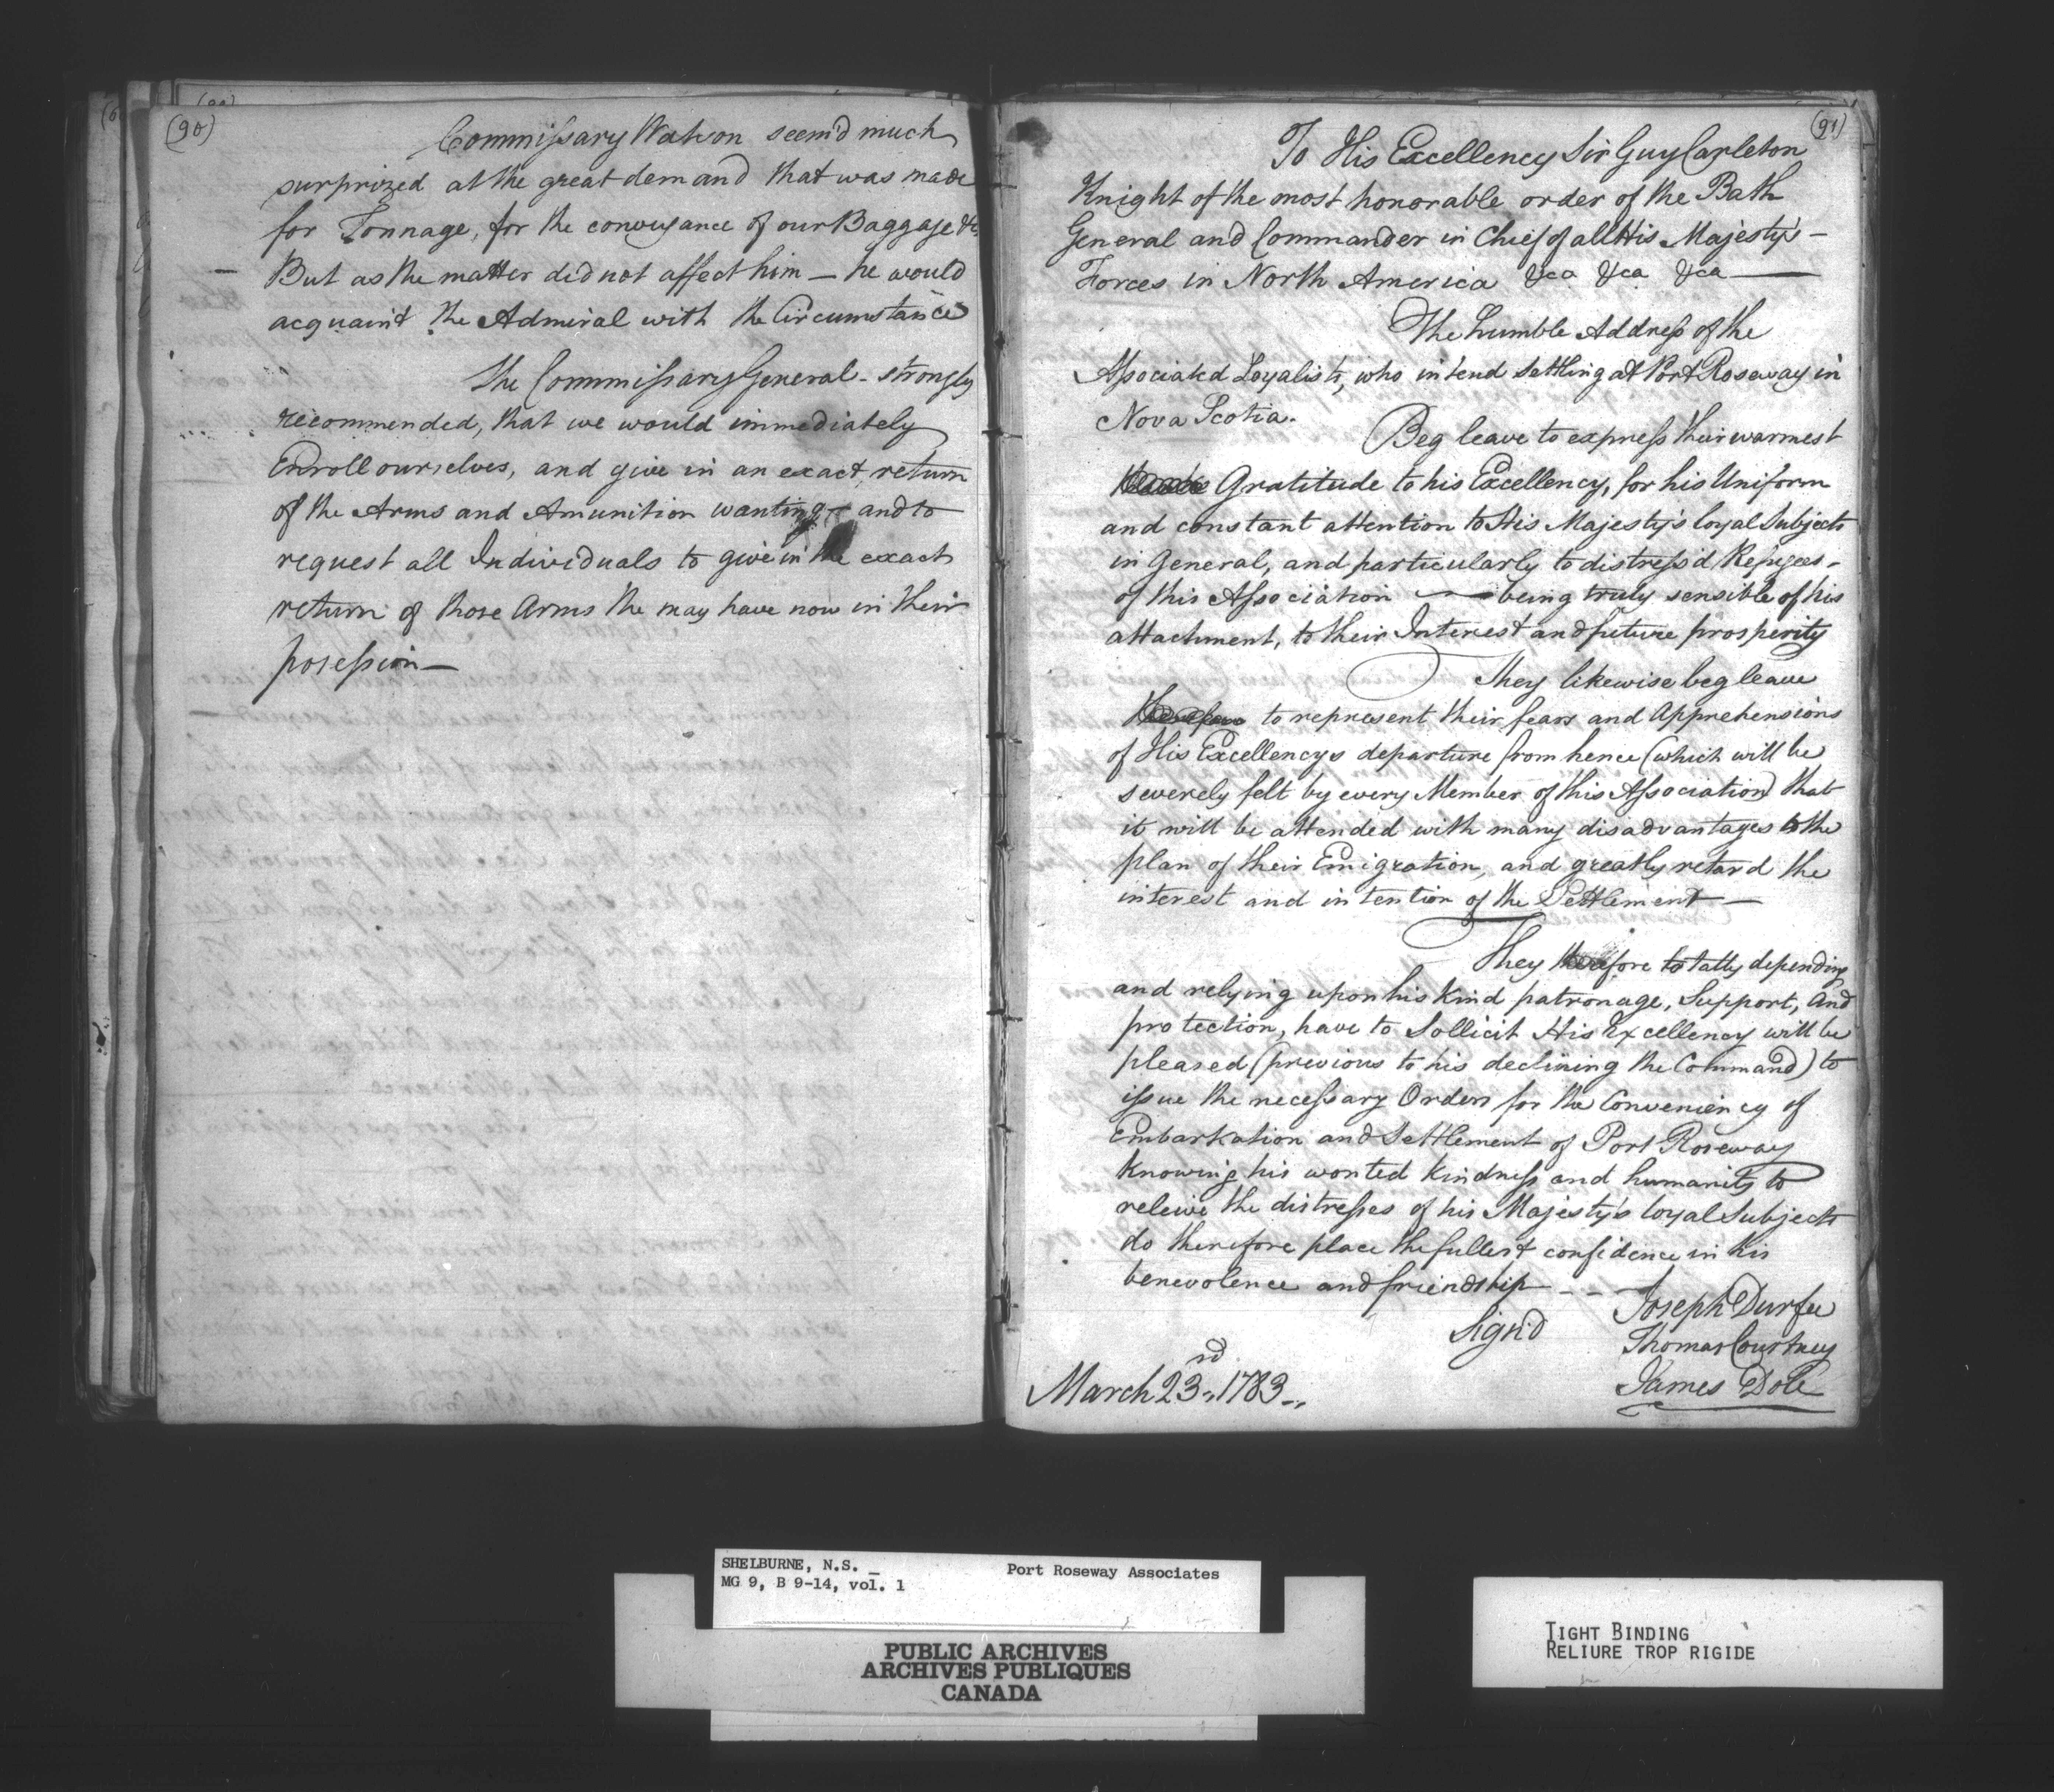 (90)
Commissary Watson seem'd much
surprized at the great demand that was made
for Tonnage, for the conveyance of our Baggage &c.
But as the matter did not affect him — he would
acquaint the Admiral with the Circumstance
The Commissary General - strongly
recommended, that we would immediately
Enroll ourselves, and give in an exact return
of the Arms and Amunition wanting — and to
request all Individuals to give in the exact
return of those Arms the may have now in their
posession —
(91)
To His Excellency Sir Guy Carleton
Knight of the most honorable order of the Bath
General and Commander in Chief of all His Majesty's —
Forces in North America &ca &ca &ca —
The humble Address of the
Associated Loyalists, who intend settling at Port Roseway in
Nova Scotia.
Beg leave to express their warmest
Gratitude to his Excellency, for his Uniform
and constant attention to His Majesty's loyal Subjects
in General, and particularly to distress'd Refugees -
of this Association — being truly sensible of his
attachment, to their Interest and future prosperity
They likewise beg leave
to represent their fears and Apprehensions
of His Excellencys departure from hence (which will be
severely felt by every Member of this Association) that
it will be attended with many disadvantages to the
plan of their Emigration, and greatly retard the
interest and intention of the Settlement —
They therefore totally depending
and relying upon his kind patronage, Support, and
protection, have to Sollicit His Excellency will be
pleased (previous to his declining the Command) to
issue the necessary Orders for the Conveniency of
Embarkation and Settlement of Port Roseway
Knowing his wonted kindness and humanity to
releive the distresses of his Majesty's loyal Subjects
do therefore place the fullest confidence in his
benevolence and friendship - - -
Sign'd
Joseph Durfee
Thomas Courtney
James Dole
March 23rd, 1783.
SHELBURNE, N.S. _ Port Roseway Associates
MG 9, B 9-14, vol. 1
PUBLIC ARCHIVES
ARCHIVES PUBLIQUES
CANADA
TIGHT BINDING
RELIURE TROP RIGIDE